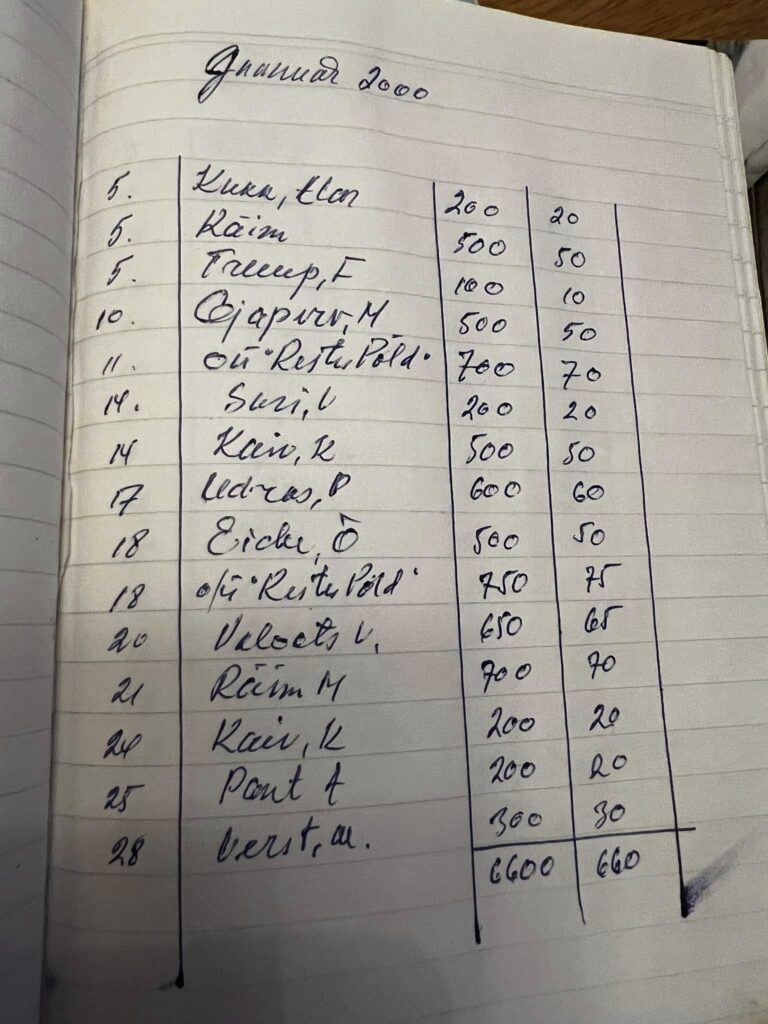 Jaanuar 2000
5. Kukk, Elar 200 20
5. Räim 500 50
5. Trump, F 100 10
10. Ojapurv, M 500 50
11. oü "Restu Põld" 700 70
14. Suri, V 200 20
14 Kaiv, K 500 50
17 Udras, P 600 60
18 Eiche, Õ 500 50
18 o/ü "Restu Põld" 750 75
20 V. 650 65
21 Räim M 700 70
24 Kaiv, K 200 20
25 Pant A 200 20
28 Verst, M. 300 30
6600 660